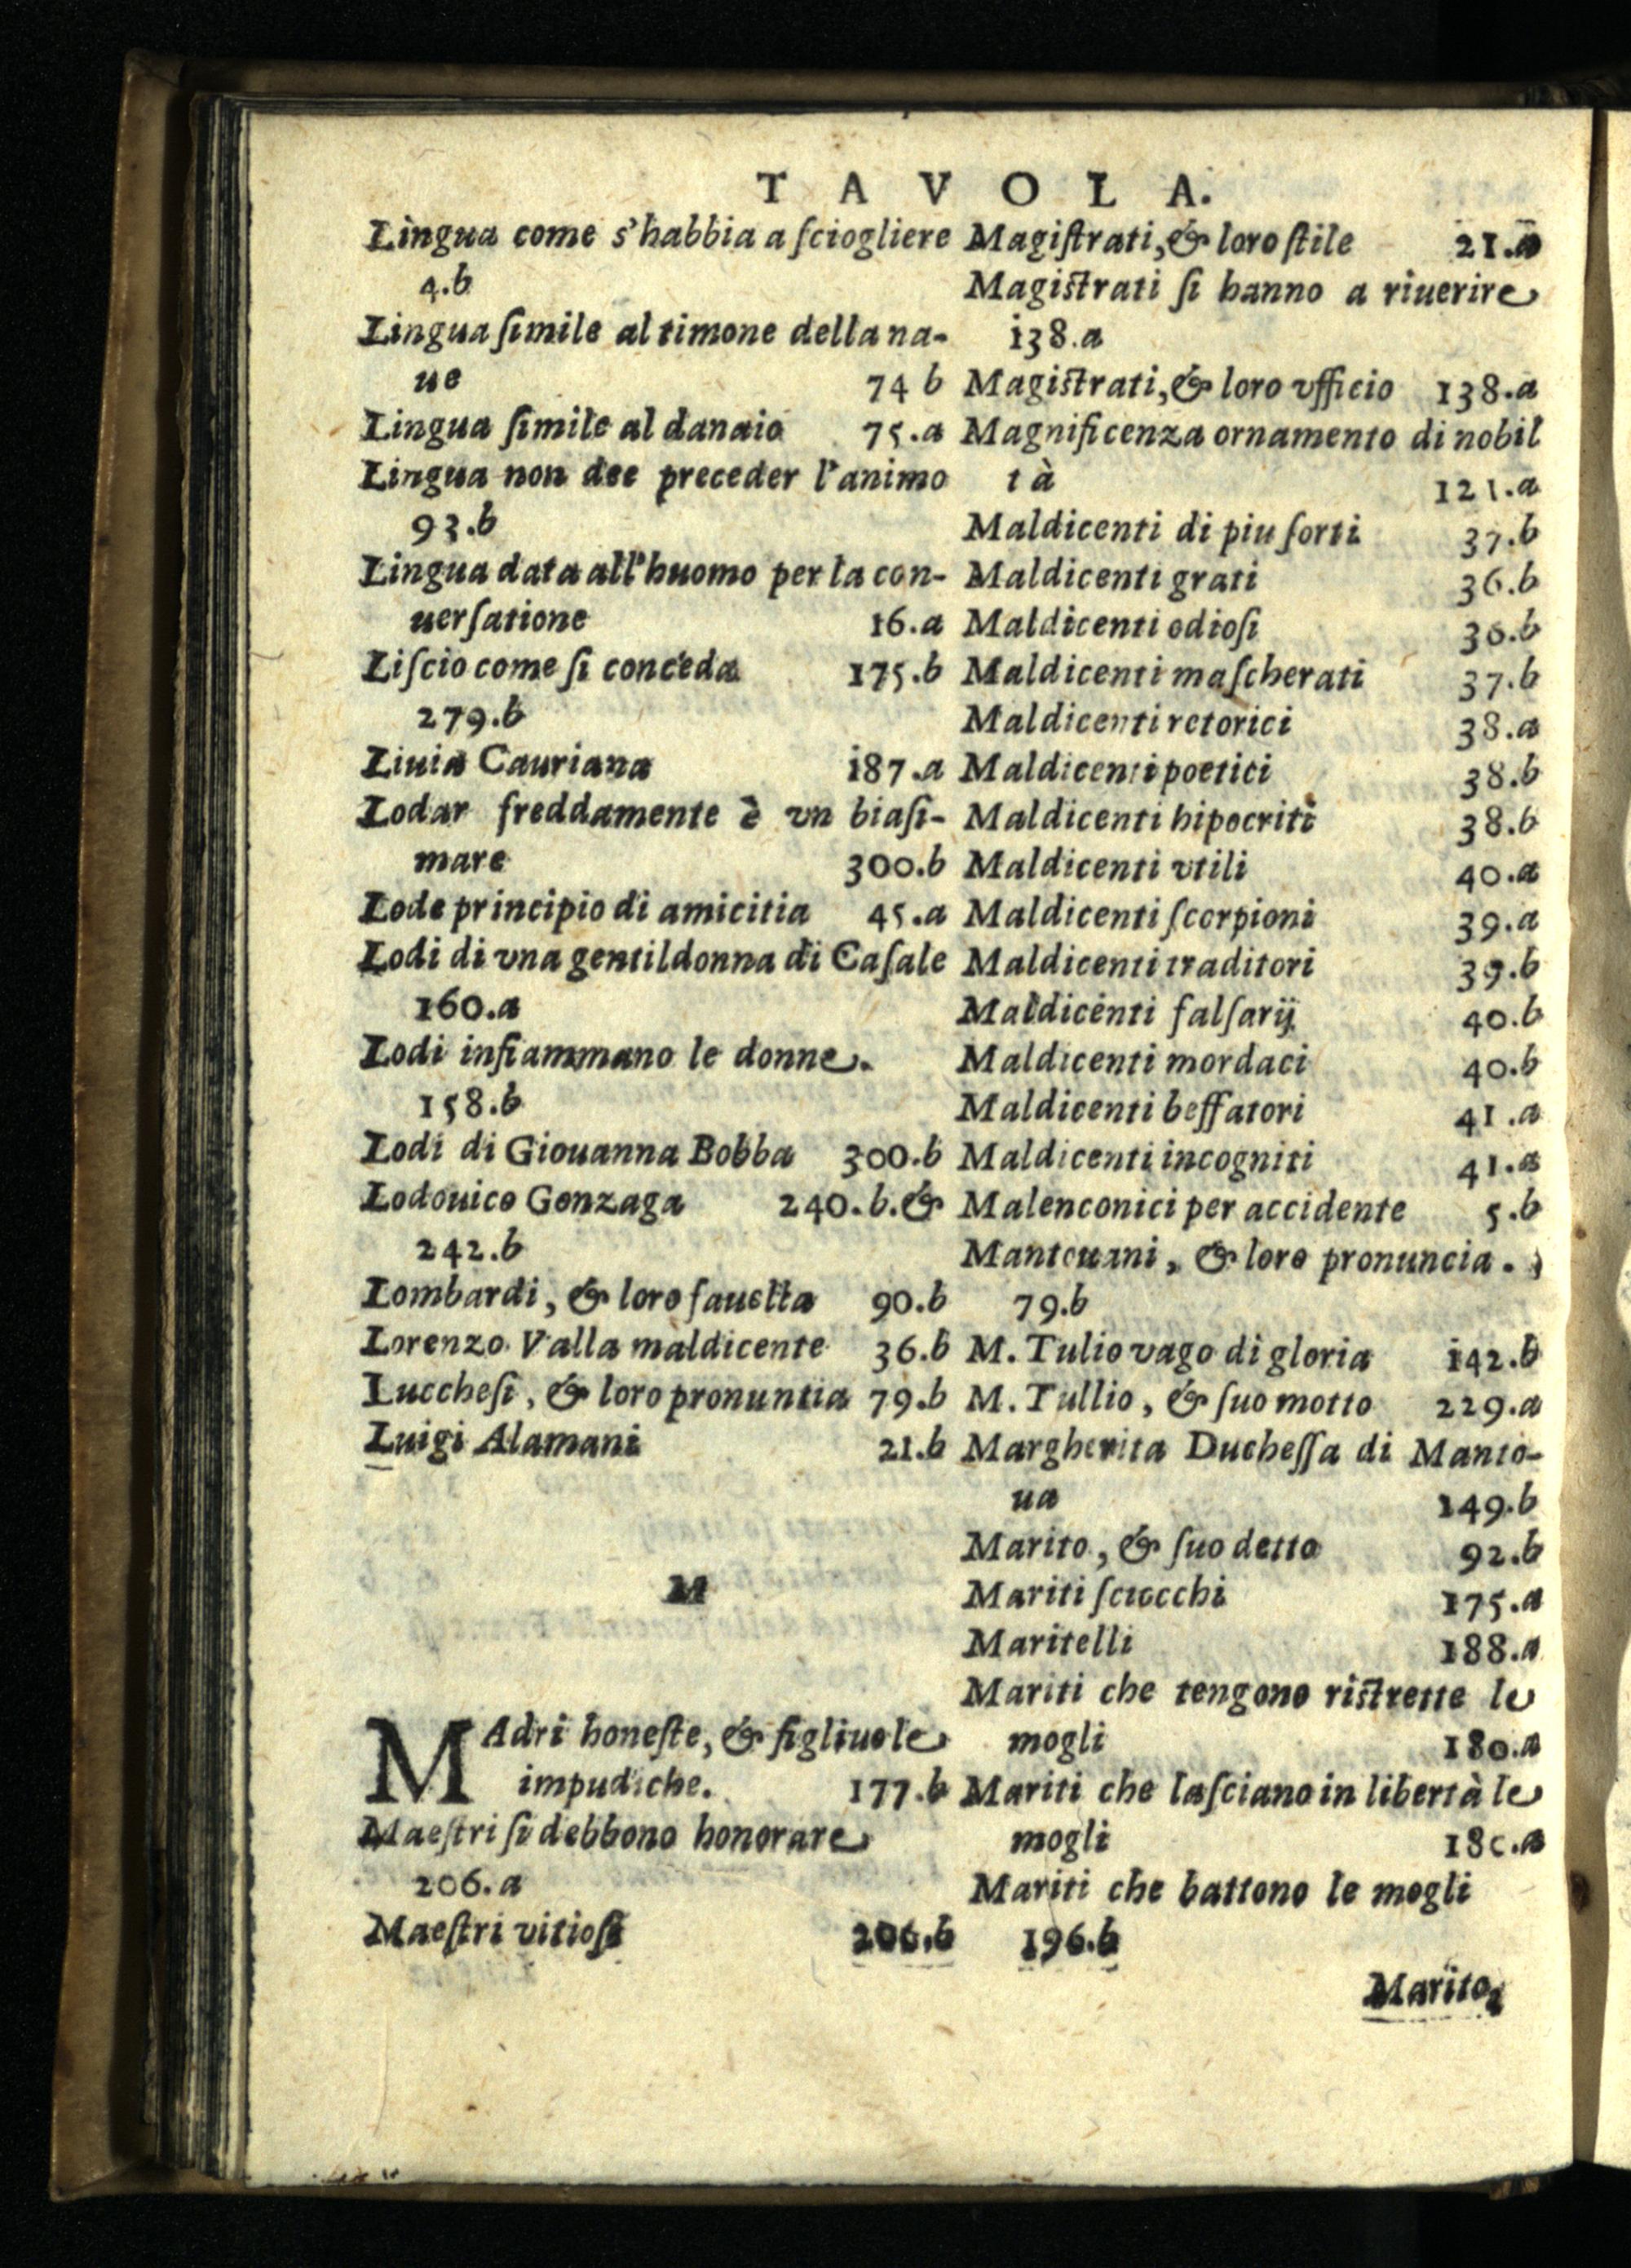 TAVOLA.
Lingua come s'habbia a ſciogliere
4.b
Lingua ſimile al timone della na-
ue 74 b
Lingua ſimile al danaio 75.a
Lingua non dee preceder l'animo
93.b
Lingua data all'huomo per la con-
uerſatione 16.a
Liſcio come ſi conceda 175.b
279.b
Liuia Cauriana 187.a
Lodar freddamente è vn biaſi-
mare 300.b
Lode principio di amicitia 45.a
Lodi di vna gentildonna di Caſale
160.a
Lodi infiammano le donne.
158.b
Lodi di Giouanna Bobba 300.b
Lodouico Gonzaga 240.b.&
242.b
Lombardi, & loro fauella 90.b
Lorenzo Valla maldicente 36.b
Luccheſi, & loro pronuntia 79.b
Luigi Alamani 21.b
M
MAdri honeſte, & figliuole
impudiche. 177.b
Maeſtri ſi debbono honorare
206.a
Maeſtri vitioſi 206.b
Magiſtrati, & loro ſtile 21.a
Magiſtrati ſi hanno a riuerire
138.a
Magiſtrati, & loro vfficio 138.a
Magnificenza ornamento di nobil
tà 121.a
Maldicenti di piu ſorti 37.b
Maldicenti grati 36.b
Maldicenti odioſi 36.b
Maldicenti maſcherati 37.b
Maldicenti retorici 38.a
Maldicenti poetici 38.b
Maldicenti hipocriti 38.b
Maldicenti vtili 40.a
Maldicenti ſcorpioni 39.a
Maldicenti traditori 39.b
Maldicenti falſarij 40.b
Maldicenti mordaci 40.b
Maldicenti beffatori 41.a
Maldicenti incogniti 41.a
Malenconici per accidente 5.b
Mantouani, & loro pronuncia.
79.b
M. Tulio vago di gloria 142.b
M. Tullio, & ſuo motto 229.a
Margherita Ducheſſa di Manto-
ua 149.b
Marito, & ſuo detto 92.b
Mariti ſciocchi 175.a
Maritelli 188.a
Mariti che tengono riſtrette le
mogli 180.a
Mariti che laſciano in libertà le
mogli 180.a
Mariti che battono le mogli
196.b
Marito,